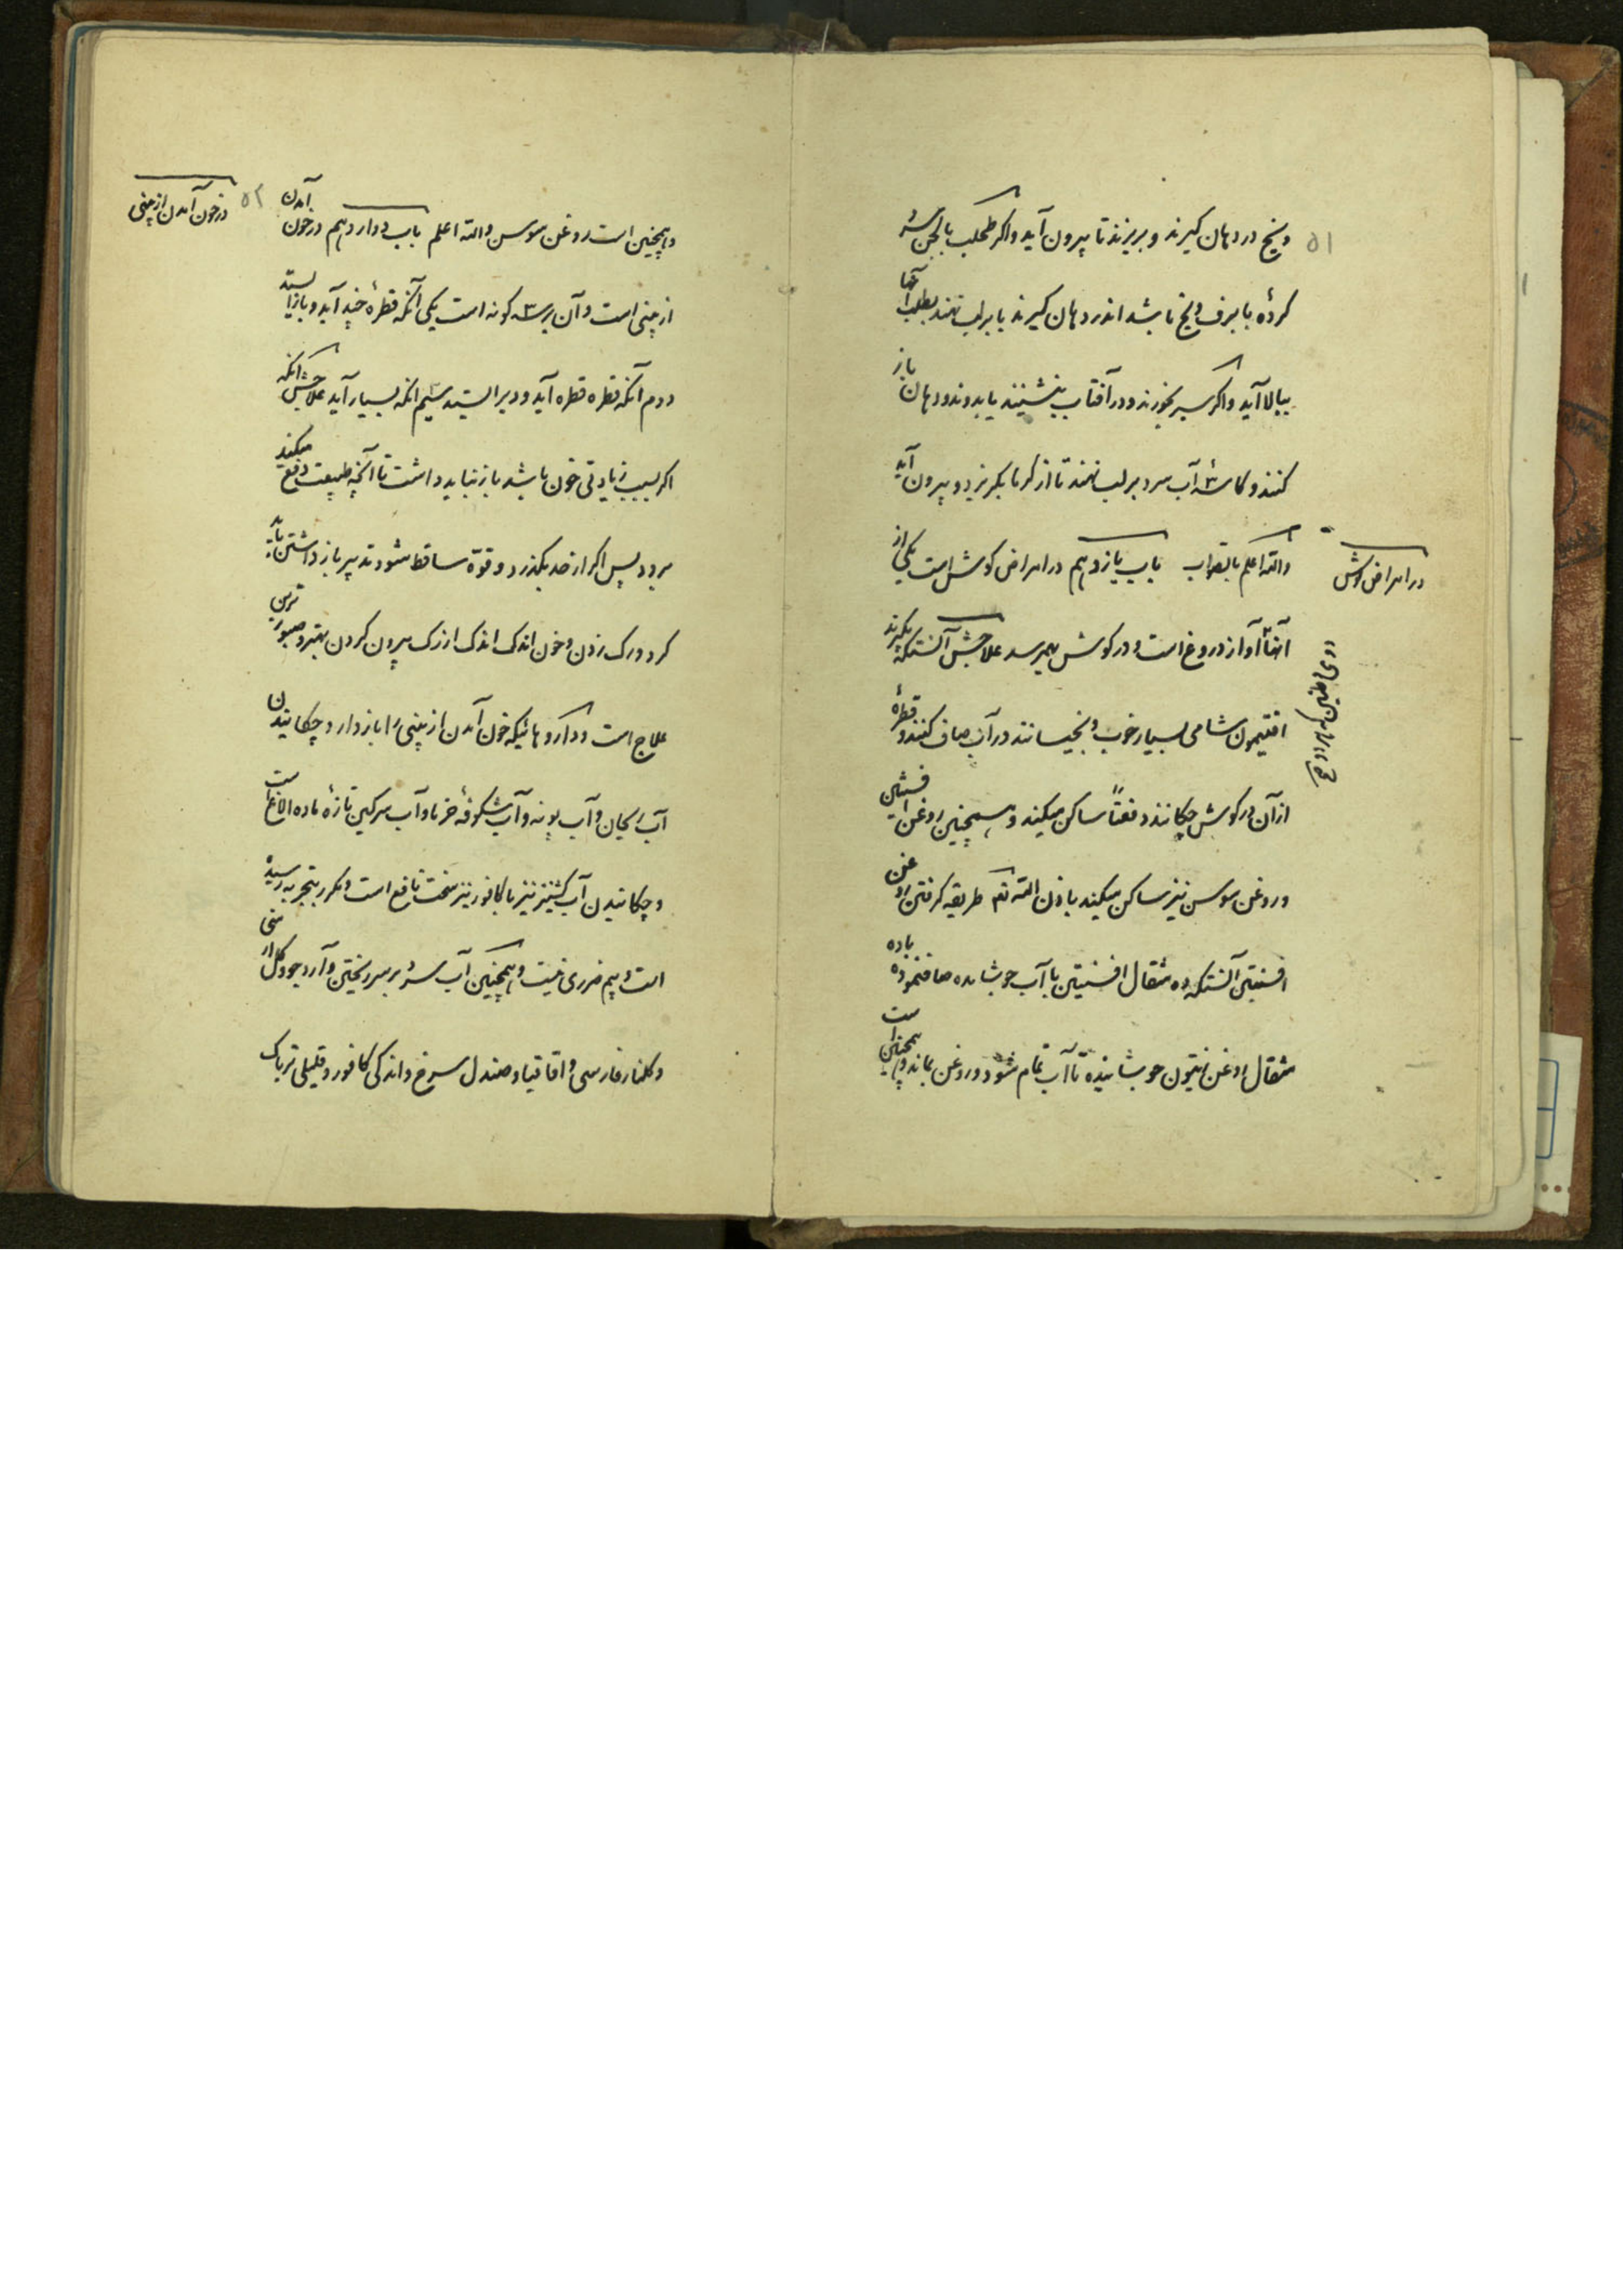 ۵۱
ویخ در دهان کیرند و بریزند تا بیرون آید واکر طحلب با لجن سر
کرده با برف ویخ باشد اندر دهان کیرند یا بر لب نهند بطلب آنها
ببالا آید واکر سیر بخورند ودر آفتاب بنشینند یا بدوند ودهان باز
کنند وکاسۀ آب سرد بر لب نهند تا از کرما بکریزد وبیرون آید
در امراض کوش
والله اعلم بالصواب باب یازدهم در امراض کوش است یکی از
آنها آواز دروغ است ودر کوش بهم رسد علاجش آنستکه بکیرند
افتیمون شامی بسیار خوب وبخیسانند در آب صاف کنند وقطرۀ
از آن در کوش چکانند دفعتاً ساکن میکند وهمچنین روغن افسنتین
وروغن سوسن نیز ساکن میکند باذن الله تع طریقه کرفتن روغن
افسنتین آنستکه ده مثقال افسنتین با آب جوشانده صاف نموده باده
مثقال روغن زیتون جوشانیده تا آب تمام شود وروغن بماند وهمچنین است
در خون آمدن از بینی
۵۲
وهمچنین است روغن سوسن والله اعلم باب دوازدهم در خون آمدن
از بینی است وآن بر ۳ کونه است یکی آنکه قطرۀ چند آید وباز ایستد
دوم آنکه قطره قطره آید ودیر ایستد سیم آنکه بسیار آید علاجش آنکه
اکر بسبب زیادتی خون باشد باز نباید داشت تا آنچه طبیعت دفع میکند
برود پس اکر از حد بکذرد وقوّة ساقط شود تدبیر باز داشتن باید
کرد ورک زدن وخون اندک اندک از رک بیرون کردن بهتر وصبورترین
علاج است وداروهائیکه خون آمدن از بینی را باز دارد چکانیدن
آب ریحان وآب پونه وآب شکوفۀ خرما وآب سرکین تازۀ ماده الاغ است
وچکانیدن آب کشنیز نیز با کافور نیز سخت نافع است ومکرر بتجربه رسیده
است وبیم ضرری نیست وهمچنین آب سرد بر سر ریختن وآرد جو وکل ارمنی
وکلنار فارسی واقاقیا وصندل سرخ واندکی کافور وقلیلی تریاک